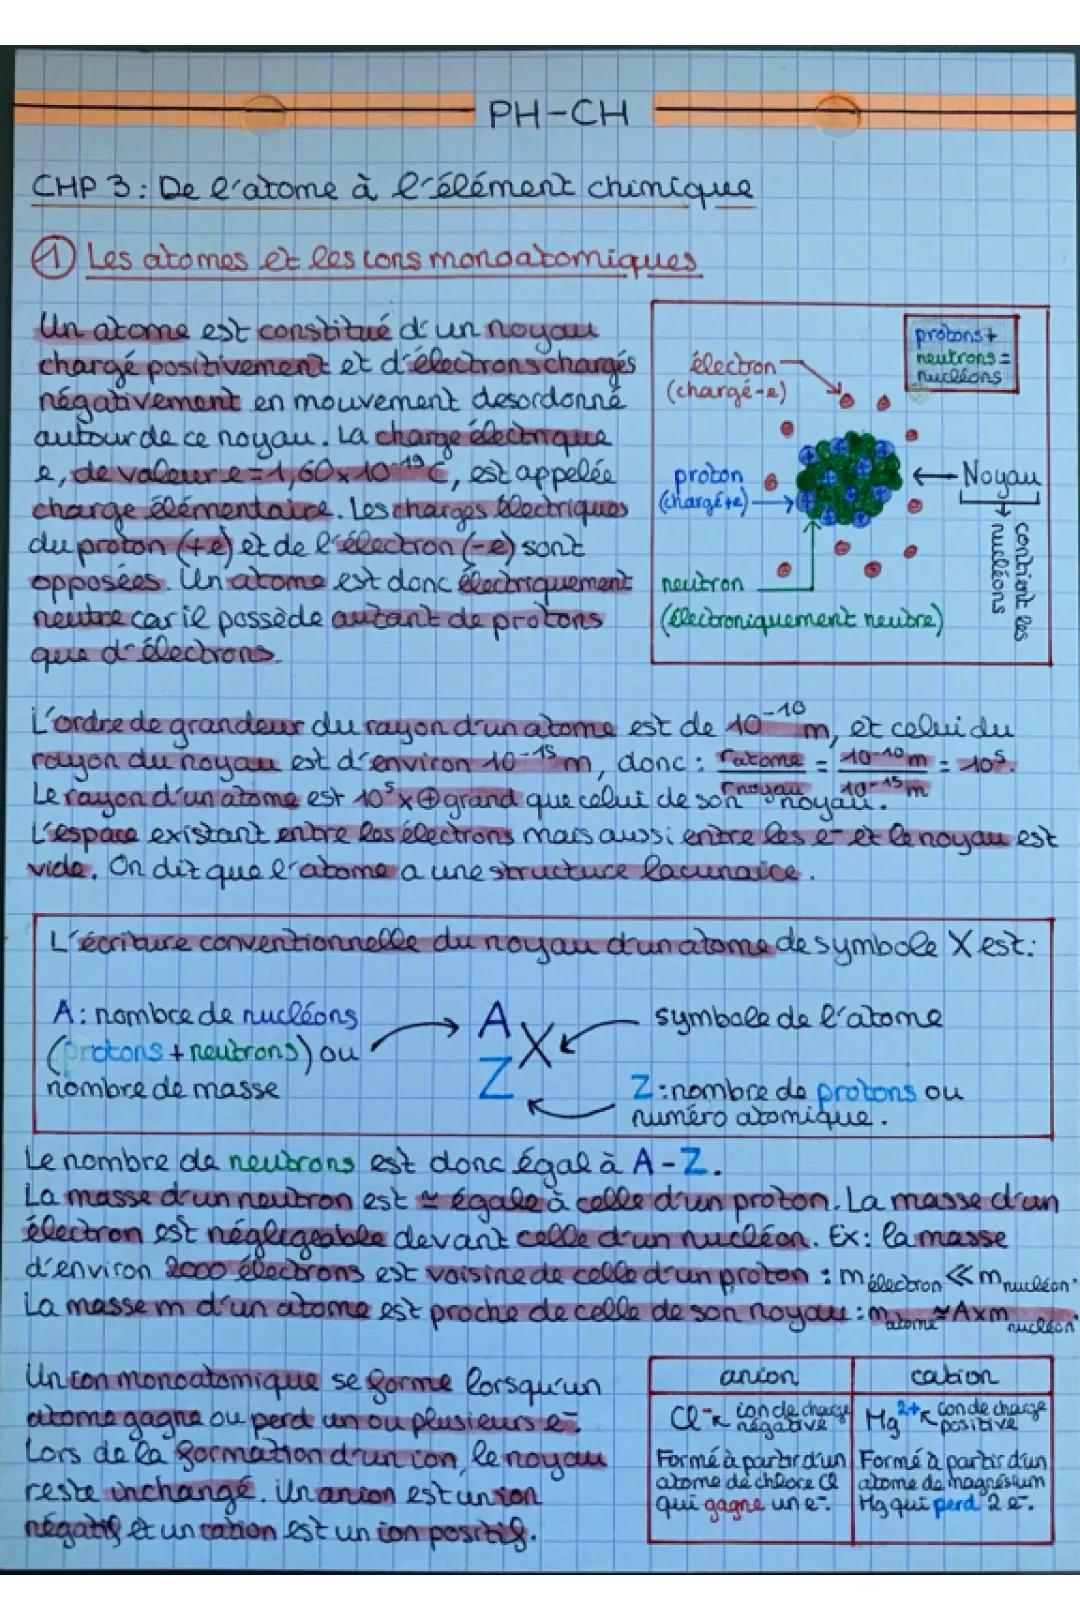 PH-CH
CHP 3 : De l'atome à l'élément chimique
① Les atomes et les ions monoatomiques
Un atome est constitué d'un noyau
chargé positivement et d'électrons chargés
négativement en mouvement desordonné
autour de ce noyau. La charge électrique
e, de valeur e = 1,60 x 10⁻¹⁹ C, est appelée
charge élémentaire. Les charges électriques
du proton (+e) et de l'électron (-e) sont
opposées. Un atome est donc électriquement
neutre car il possède autant de protons
que d'électrons.
protons +
neutrons =
nucléons
électron
(chargé -e)
proton
(chargé +e)
Noyau
contient les
nucléons
neutron
(électroniquement neutre)
L'ordre de grandeur du rayon d'un atome est de 10⁻¹⁰ m, et celui du
rayon du noyau est d'environ 10⁻¹⁵ m, donc : r atome / r noyau = 10⁻¹⁰ m / 10⁻¹⁵ m = 10⁵.
Le rayon d'un atome est 10⁵ x ⊕ grand que celui de son noyau.
L'espace existant entre les électrons mais aussi entre les e⁻ et le noyau est
vide. On dit que l'atome a une structure lacunaire.
L'écriture conventionnelle du noyau d'un atome de symbole X est :
A : nombre de nucléons
(protons + neutrons) ou
nombre de masse
A
Z
X
symbole de l'atome
Z : nombre de protons ou
numéro atomique.
Le nombre de neutrons est donc égal à A - Z.
La masse d'un neutron est ≃ égale à celle d'un proton. La masse d'un
électron est négligeable devant celle d'un nucléon. Ex : la masse
d'environ 2000 électrons est voisine de celle d'un proton : m électron ≪ m nucléon.
La masse m d'un atome est proche de celle de son noyau : m atome ≃ A x m nucléon
Un ion monoatomique se forme lorsqu'un
atome gagne ou perd un ou plusieurs e⁻.
Lors de la formation d'un ion, le noyau
reste inchangé. Un anion est un ion
négatif et un cation est un ion positif.
anion
Cl⁻ ion de charge
négative
Formé à partir d'un
atome de chlore Cl
qui gagne un e⁻.
cation
Mg²⁺ ion de charge
positive
Formé à partir d'un
atome de magnésium
Mg qui perd 2 e⁻.